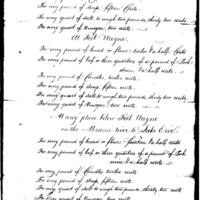 For every pound of soap, fifteen Cents
For every quart of salt, to weigh two pounds, thirty two cents.
For every quart of Vinegar, two cents.
At Fort Wayne.
For every pound of bread or flour, twelve & a half Cents
For every pound of beef, or three quarters of a pound of Pork
nine & a half cents.
For every pound of Candles, twelve cents.
For every pound of soap, fifteen cents.
For every quart of salt to weigh two pounds, thirty two cents
For every quart of Vinegar, two cents.
At any place below Fort Wayne
on the Miami river to Lake Erie
For every pound of bread or flour, fourteen & a half cents.
For every pound of beef, or three quarters of a pound of Pork
nine & a half cents.
For every pound of Candles twelve cents.
For every pound of soap, fifteen cents.
For every quart of salt to weigh two pounds, thirty two cents.
For every quart of Vinegar, two cents.